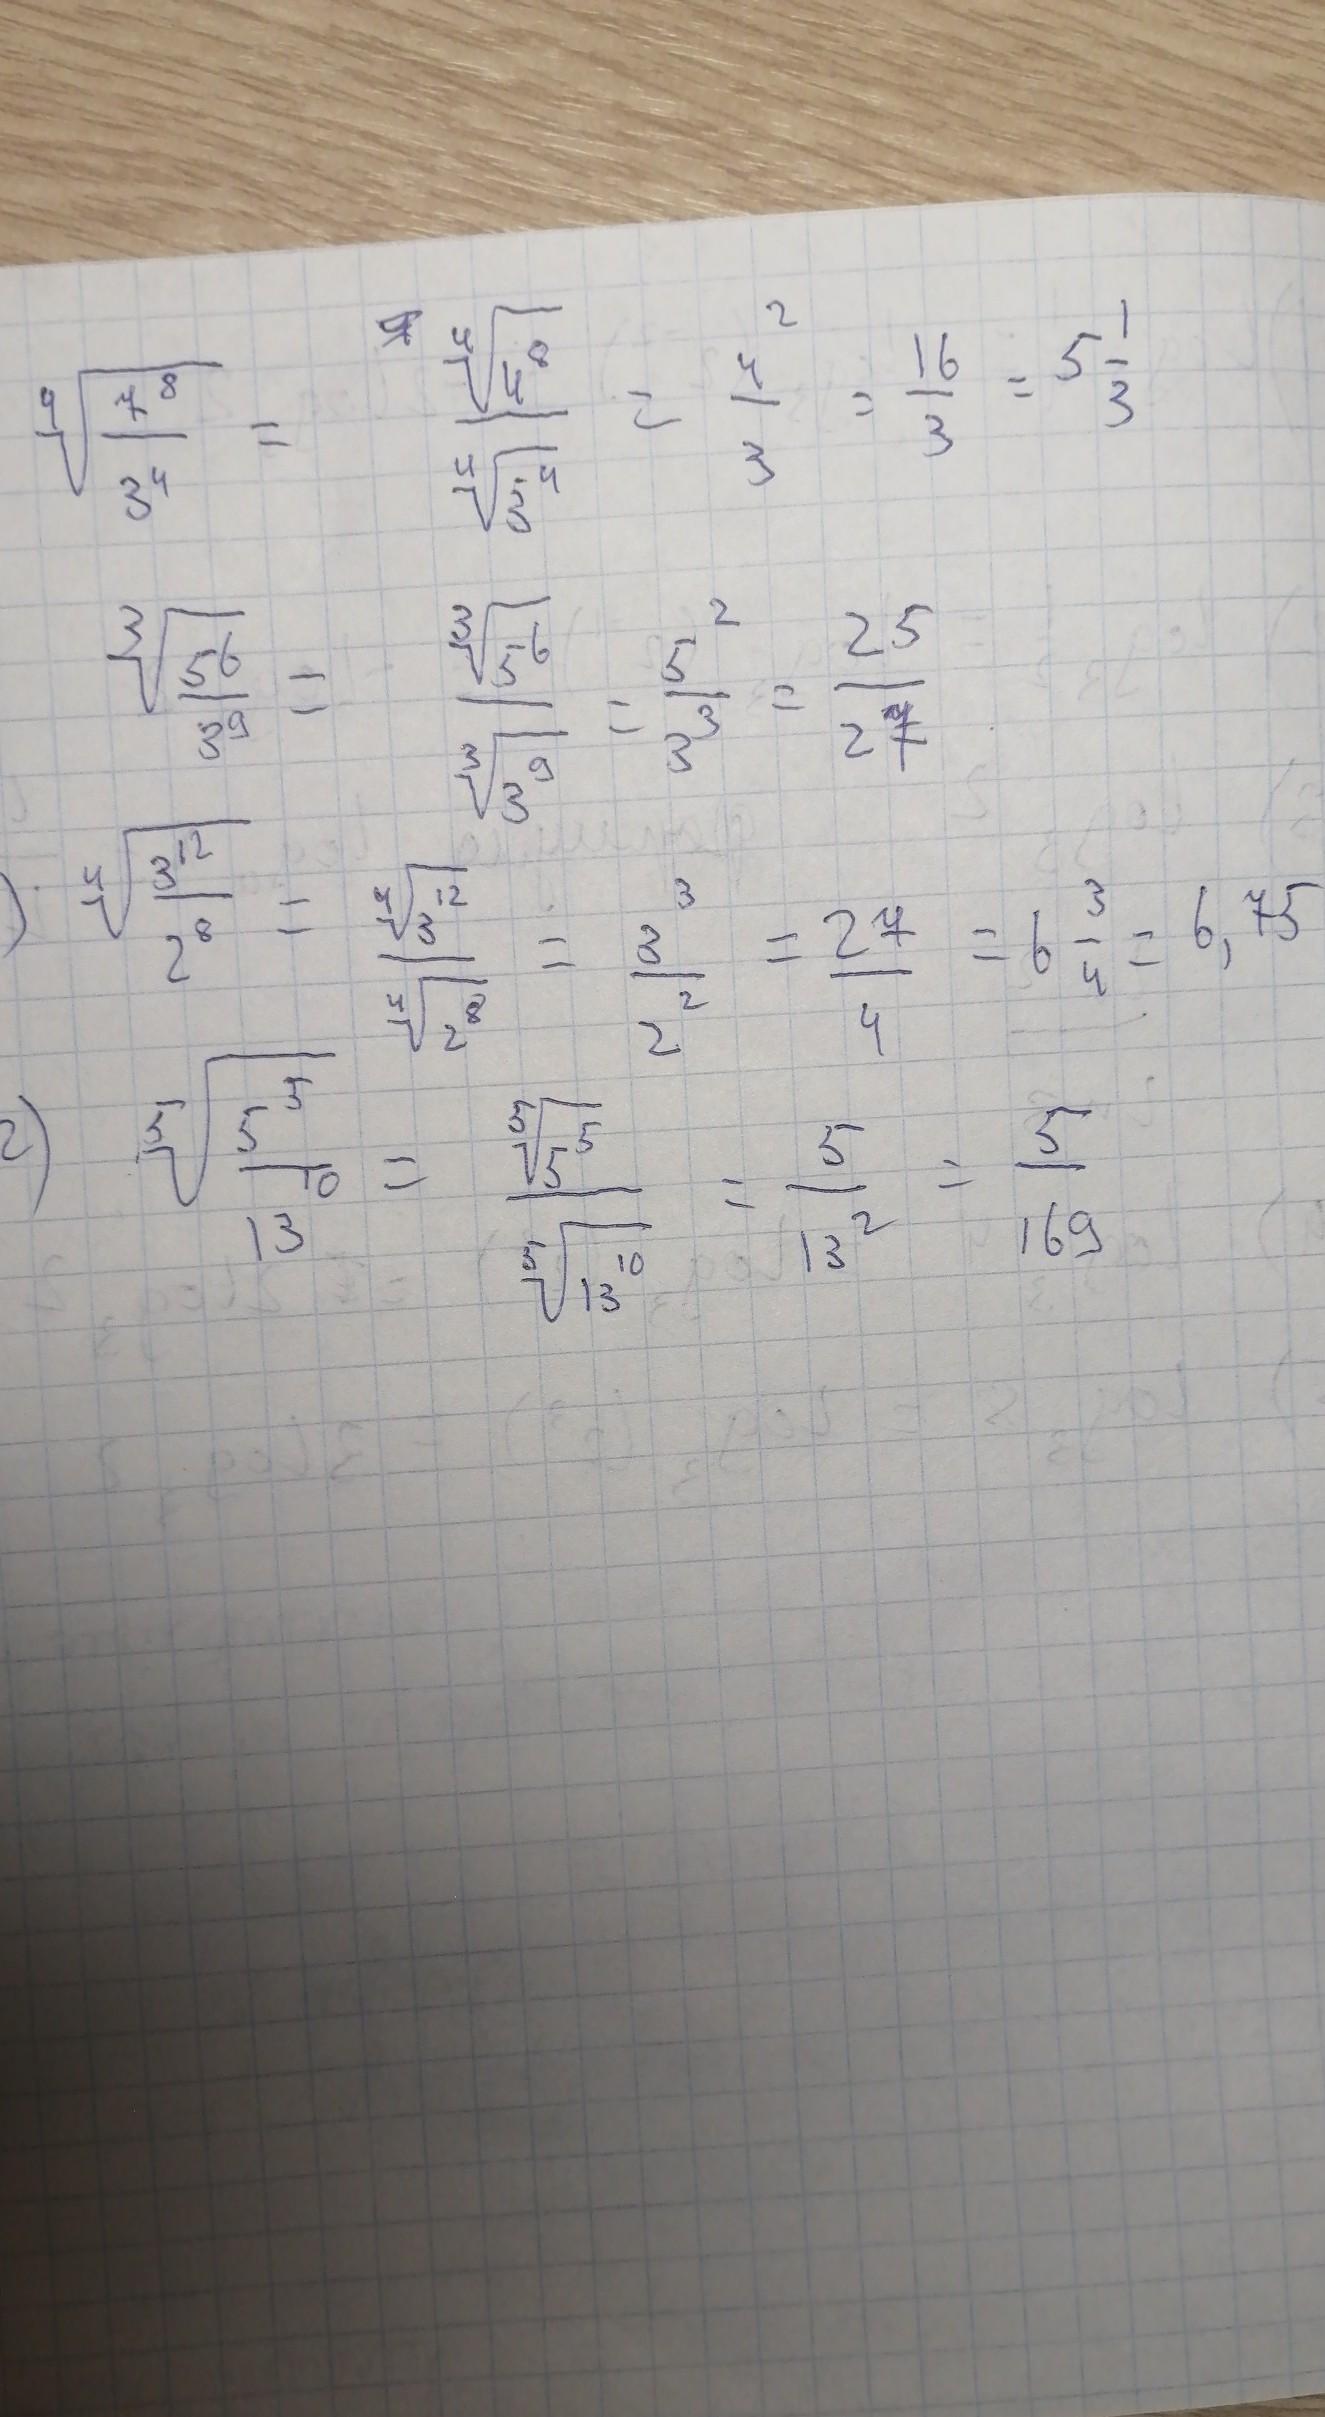 ⁴√(7⁸/3⁴) = ⁴√4⁸/⁴√3⁴ = 4²/3 = 16/3 = 5 1/3
³√(5⁶/3⁹) = ³√5⁶/³√3⁹ = 5²/3³ = 25/27
) ⁴√(3¹²/2⁸) = ⁴√3¹²/⁴√2⁸ = 3³/2² = 27/4 = 6 3/4 = 6,75
2) ⁵√(5⁵/13¹⁰) = ⁵√5⁵/⁵√13¹⁰ = 5/13² = 5/169